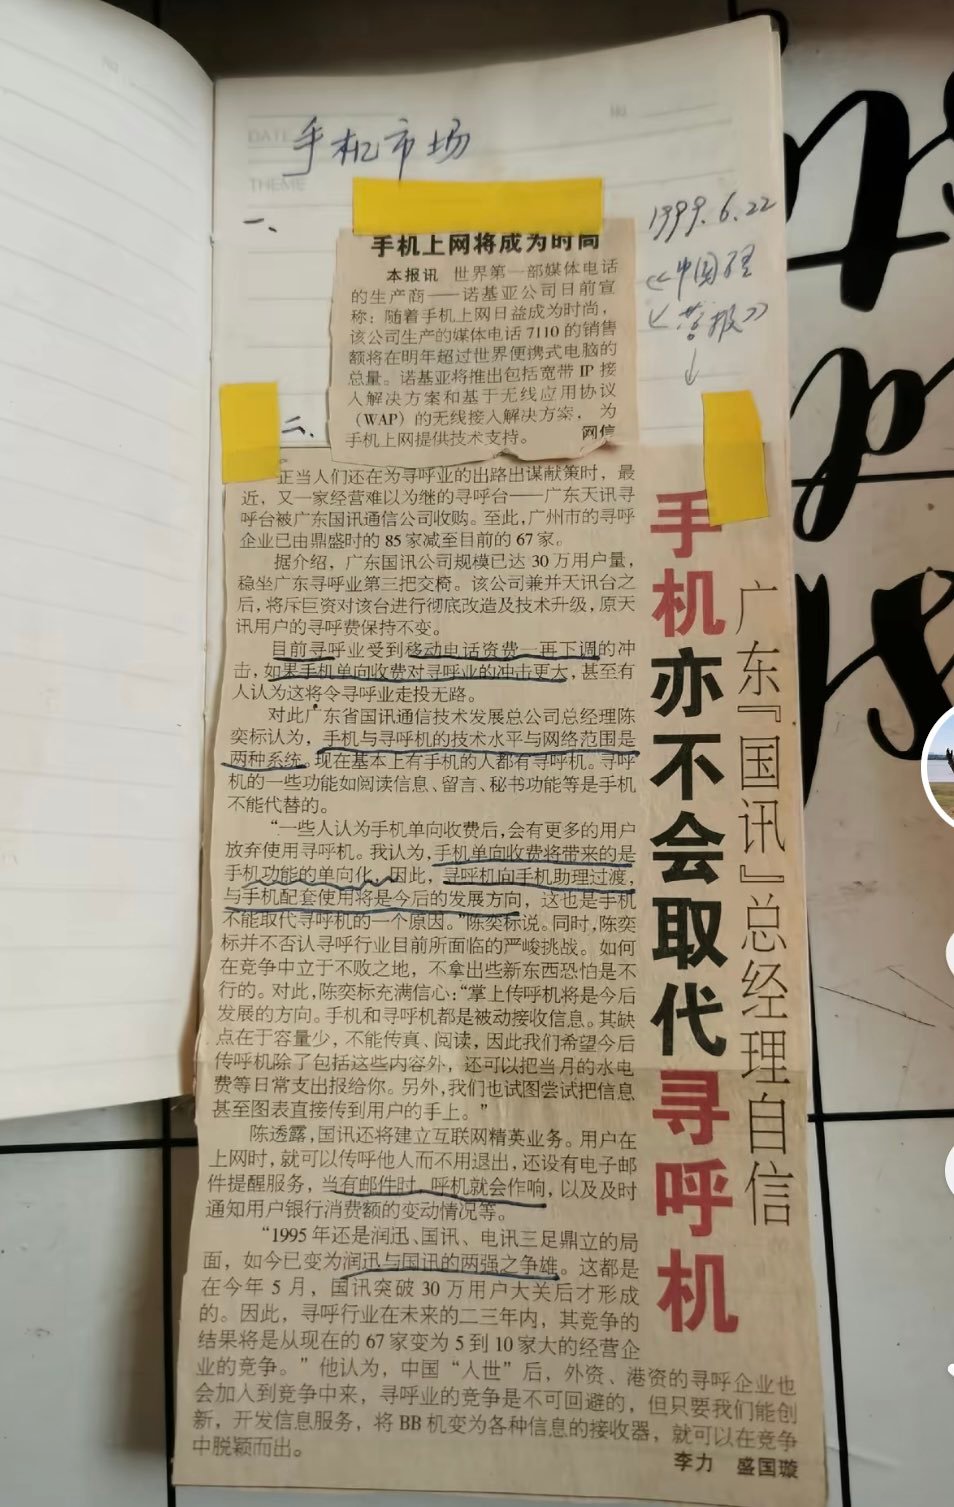 DATE
手机市场
THEME
一、
1999.6.22
《中国经
营报》
手机上网将成为时尚
本报讯 世界第一部媒体电话
的生产商——诺基亚公司日前宣
称：随着手机上网日益成为时尚，
该公司生产的媒体电话 7110 的销售
额将在明年超过世界便携式电脑的
总量。诺基亚将推出包括宽带 IP 接
入解决方案和基于无线应用协议
（WAP）的无线接入解决方案，为
手机上网提供技术支持。 网信
二、
手机亦不会取代寻呼机
广东『国讯』总经理自信
正当人们还在为寻呼业的出路出谋献策时，最
近，又一家经营难以为继的寻呼台——广东天讯寻
呼台被广东国讯通信公司收购。至此，广州市的寻呼
企业已由鼎盛时的 85 家减至目前的 67 家。
据介绍，广东国讯公司规模已达 30 万用户量，
稳坐广东寻呼业第三把交椅。该公司兼并天讯台之
后，将斥巨资对该台进行彻底改造及技术升级，原天
讯用户的寻呼费保持不变。
目前寻呼业受到移动电话资费一再下调的冲
击，如果手机单向收费对寻呼业的冲击更大，甚至有
人认为这将令寻呼业走投无路。
对此广东省国讯通信技术发展总公司总经理陈
奕标认为，手机与寻呼机的技术水平与网络范围是
两种系统。现在基本上有手机的人都有寻呼机。寻呼
机的一些功能如阅读信息、留言、秘书功能等是手机
不能代替的。
“一些人认为手机单向收费后，会有更多的用户
放弃使用寻呼机。我认为，手机单向收费将带来的是
手机功能的单向化，因此，寻呼机向手机助理过渡，
与手机配套使用将是今后的发展方向，这也是手机
不能取代寻呼机的一个原因。”陈奕标说。同时，陈奕
标并不否认寻呼行业目前所面临的严峻挑战。如何
在竞争中立于不败之地，不拿出些新东西恐怕是不
行的。对此，陈奕标充满信心：“掌上传呼机将是今后
发展的方向。手机和寻呼机都是被动接收信息。其缺
点在于容量少，不能传真、阅读，因此我们希望今后
传呼机除了包括这些内容外，还可以把当月的水电
费等日常支出报给你。另外，我们也试图尝试把信息
甚至图表直接传到用户的手上。”
陈透露，国讯还将建立互联网精英业务。用户在
上网时，就可以传呼他人而不用退出，还设有电子邮
件提醒服务，当有邮件时，呼机就会作响，以及及时
通知用户银行消费额的变动情况等。
“1995 年还是润迅、国讯、电讯三足鼎立的局
面，如今已变为润迅与国讯的两强之争雄。这都是
在今年 5 月，国讯突破 30 万用户大关后才形成
的。因此，寻呼行业在未来的二三年内，其竞争的
结果将是从现在的 67 家变为 5 到 10 家大的经营企
业的竞争。”他认为，中国“入世”后，外资、港资的寻呼企业也
会加入到竞争中来，寻呼业的竞争是不可回避的，但只要我们能创
新，开发信息服务，将 BB 机变为各种信息的接收器，就可以在竞争
中脱颖而出。
李力 盛国璇